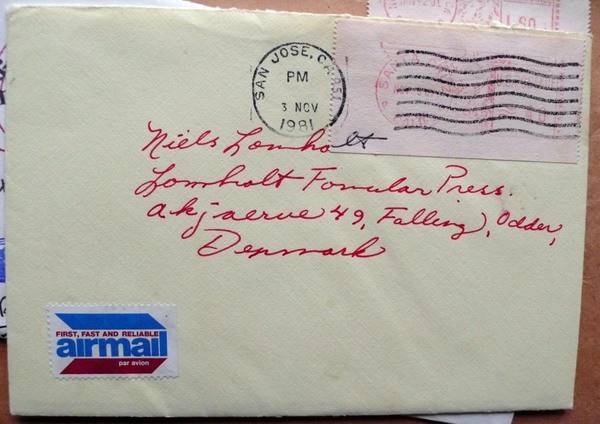 SAN JOSE, CA 951
PM
3 NOV
1981
Niels Lomholt
Lomholt Fomular Press.
akjaerve 49, Falling), Odder,
Denmark
FIRST, FAST AND RELIABLE
airmail
par avion